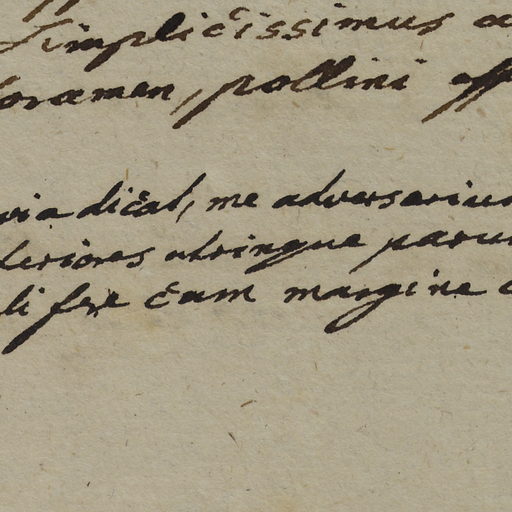 simplicissimus
foramen, pollini
via dicat, me adversarium
teriores utrinque parum
li fere cum margine